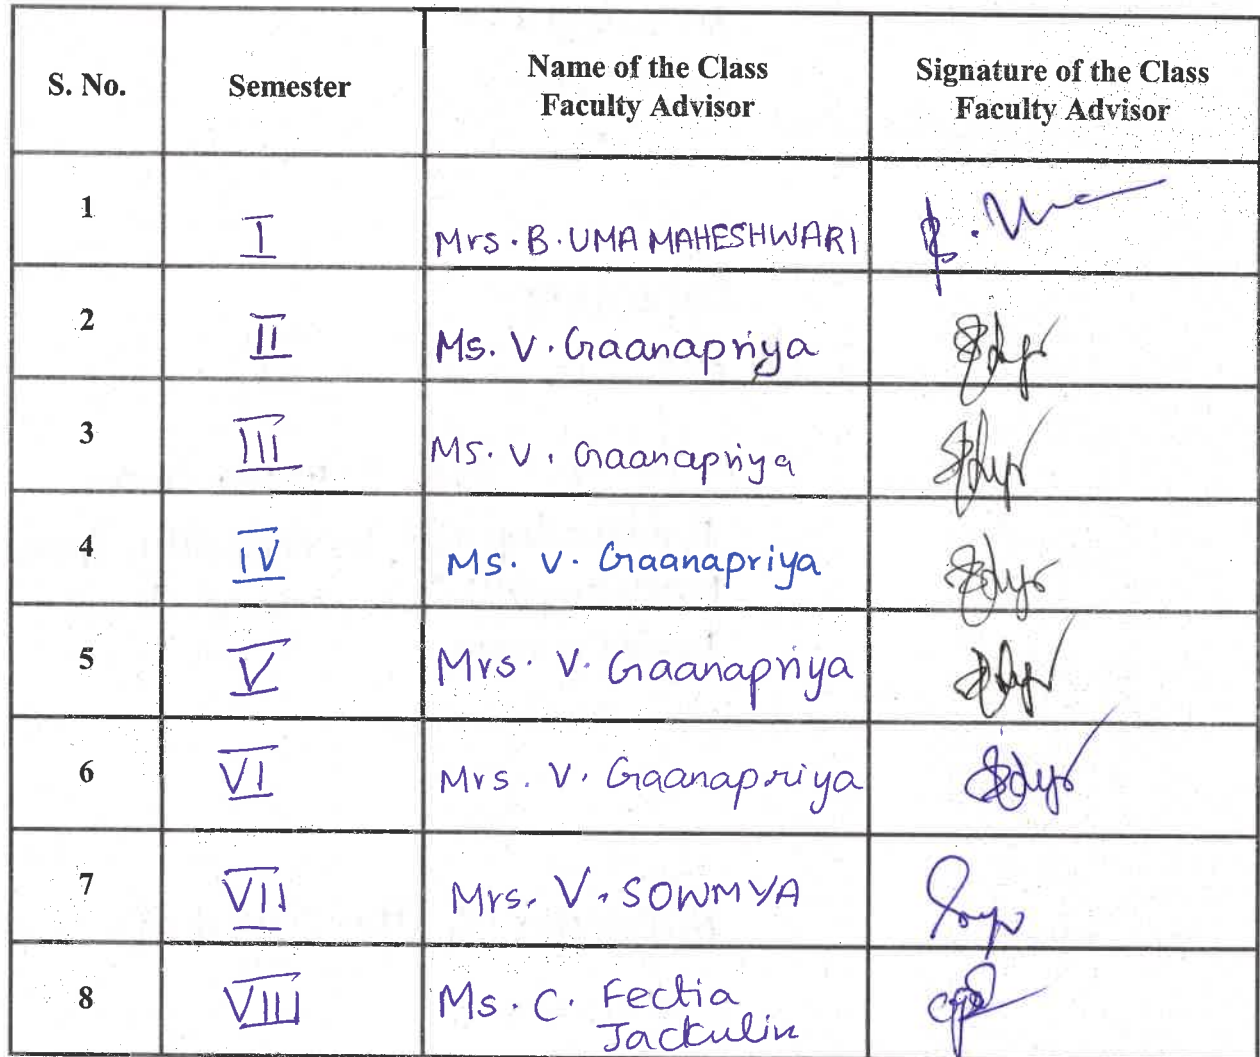 S. No.
Semester
Name of the Class
Faculty Advisor
Signature of the Class
Faculty Advisor
1
I
Mrs. B. UMA MAHESHWARI
B. Uma
2
II
Ms. V. Gaanapriya
3
III
Ms. V. Gaanapriya
4
IV
Ms. V. Gaanapriya
5
V
Mrs. V. Gaanapriya
6
VI
Mrs. V. Gaanapriya
7
VII
Mrs. V. SOWMYA
8
VIII
Ms. C. Fectia
Jackulin